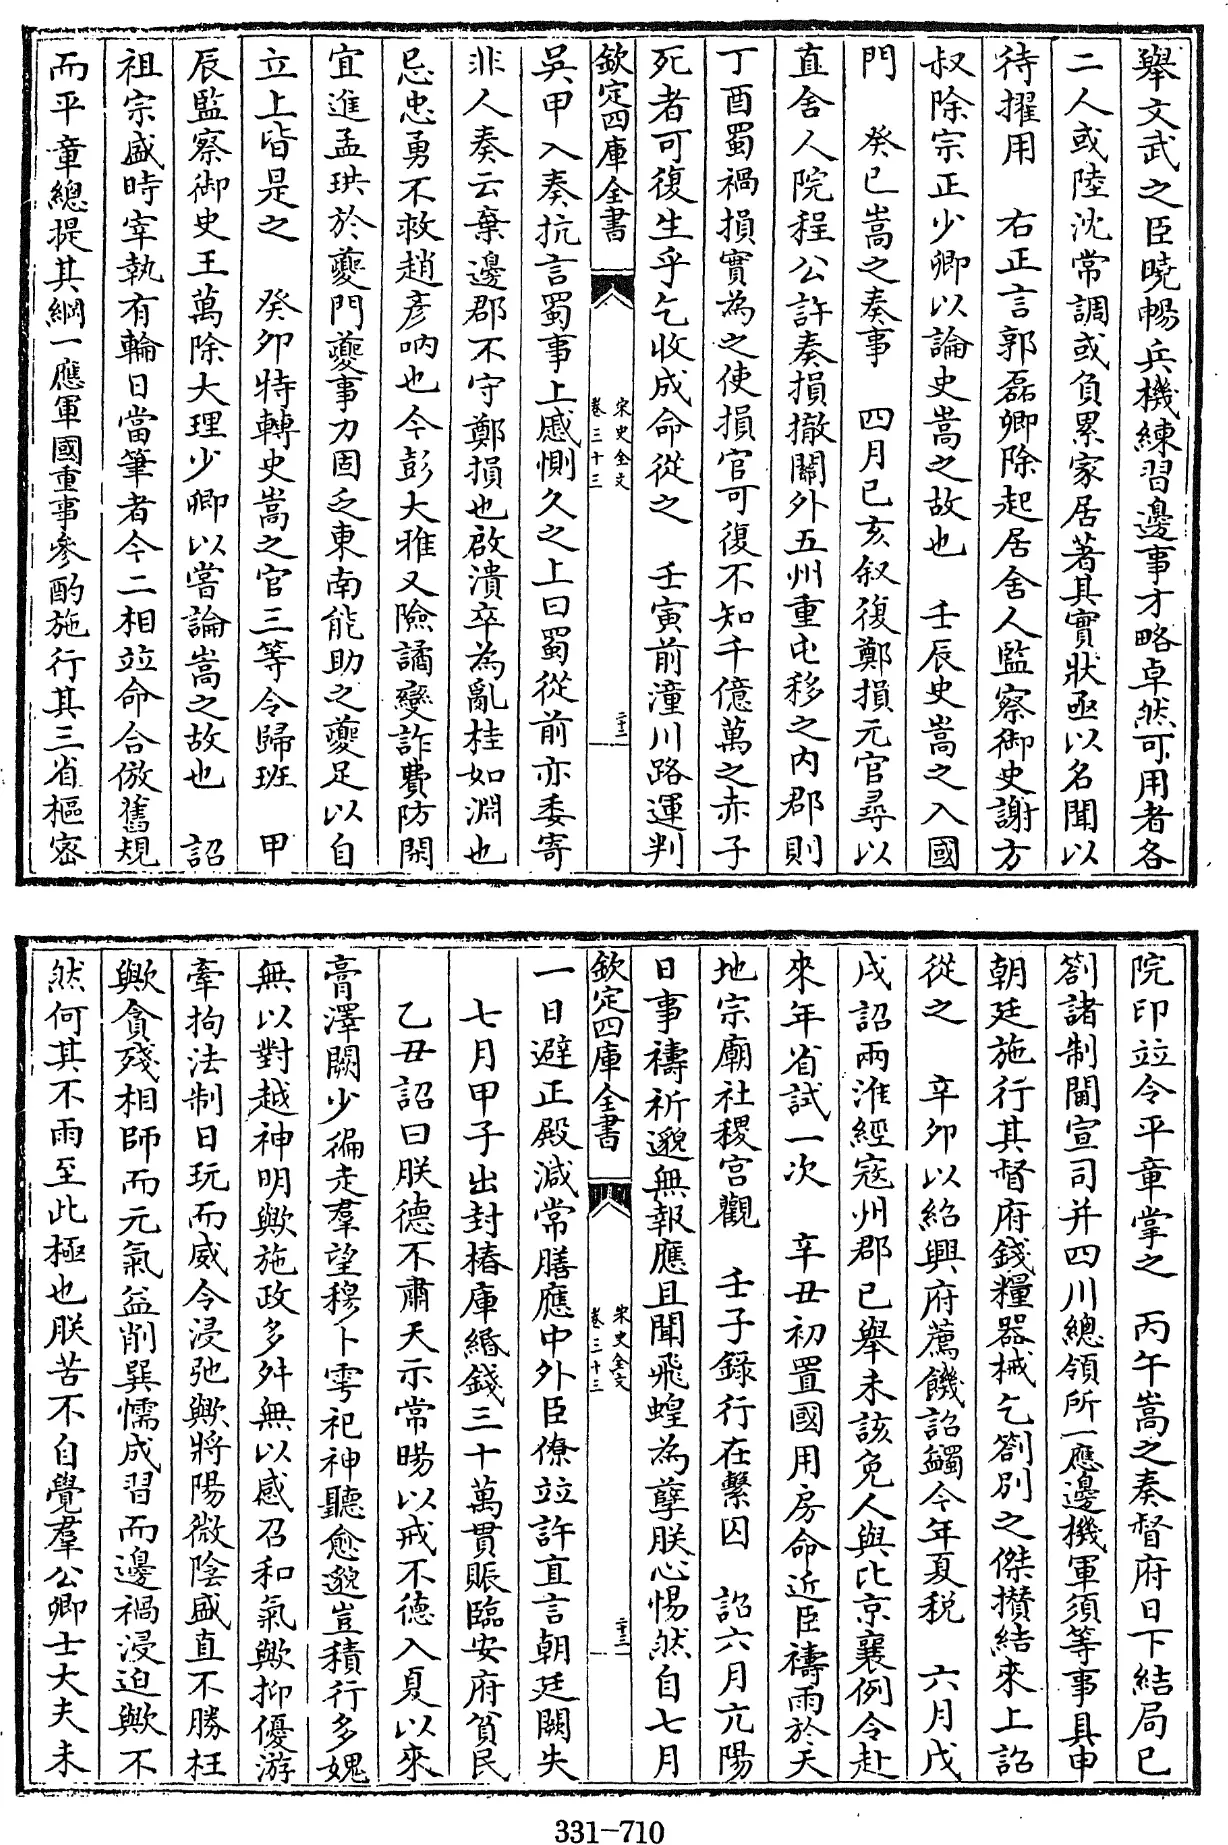 舉文武之臣曉暢兵機練習邊事才略卓然可用者各
二人或陸沈常調或負累家居著其實狀亟以名聞以
待擢用　右正言郭磊卿除起居舍人監察御史謝方
叔除宗正少卿以論史嵩之故也　壬辰史嵩之入國
門　癸巳嵩之奏事　四月己亥叙復鄭損元官尋以
直舍人院程公許奏損撤關外五州重屯移之内郡則
丁酉蜀禍損實為之使損官可復不知千億萬之赤子
死者可復生乎乞收成命從之　壬寅前潼川路運判
欽定四庫全書
宋史全文
卷三十三
二十二
吳甲入奏抗言蜀事上慼惻久之上曰蜀從前亦委寄
非人奏云棄邊郡不守鄭損也啟潰卒為亂桂如淵也
忌忠勇不救趙彦吶也今彭大雅又險譎變詐費防閑
宜進孟珙於夔門夔事力固乏東南能助之夔足以自
立上皆是之　癸卯特轉史嵩之官三等令歸班　甲
辰監察御史王萬除大理少卿以嘗論嵩之故也　詔
祖宗盛時宰執有輪日當筆者今二相竝命合倣舊規
而平章總提其綱一應軍國重事參酌施行其三省樞密
院印竝令平章掌之　丙午嵩之奏督府日下結局已
劄諸制閫宣司并四川總領所一應邊機軍須等事具申
朝廷施行其督府錢糧器械乞劄別之傑攢結來上詔
從之　辛卯以紹興府薦饑詔蠲今年夏税　六月戊
戌詔兩淮經寇州郡已舉未該免人與比京襄例令赴
來年省試一次　辛丑初置國用房命近臣禱雨於天
地宗廟社稷宫觀　壬子錄行在繫囚　詔六月亢陽
日事禱祈邈無報應且聞飛蝗為孽朕心惕然自七月
欽定四庫全書
宋史全文
卷三十三
二十三
一日避正殿減常膳應中外臣僚竝許直言朝廷闕失
七月甲子出封樁庫緡錢三十萬貫賑臨安府貧民
乙丑詔曰朕德不肅天示常暘以戒不德入夏以來
膏澤闕少徧走羣望穆卜雩祀神聽愈邈豈積行多媿
無以對越神明歟施政多舛無以感召和氣歟抑優游
牽拘法制日玩而威令浸弛歟將陽微陰盛直不勝枉
歟貪殘相師而元氣益削巽懦成習而邊禍浸迫歟不
然何其不雨至此極也朕苦不自覺羣公卿士大夫未
331-710